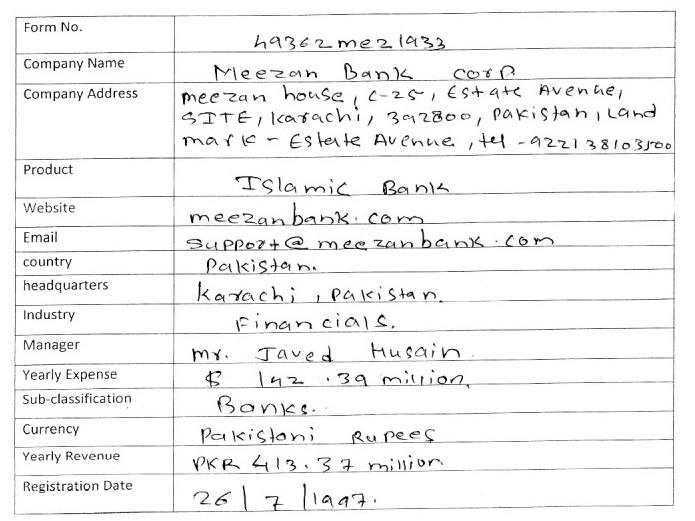 Form No.
49362mez1933
Company Name
Meezan Bank corp
Company Address
meezan house, C-25, Estate Avenue,
SITE, karachi, 392800, pakistan, Land
mark - Estate Avenue, tel -922138103500
Product
Islamic Bank
Website
meezanbank.com
Email
support@meezanbank.com
country
Pakistan.
headquarters
karachi, pakistan.
Industry
Financials.
Manager
mr. Javed Husain.
Yearly Expense
$ 142.39 million.
Sub-classification
Banks.
Currency
Pakistani Rupees
Yearly Revenue
PKR 413.37 million
Registration Date
26/7/1997.